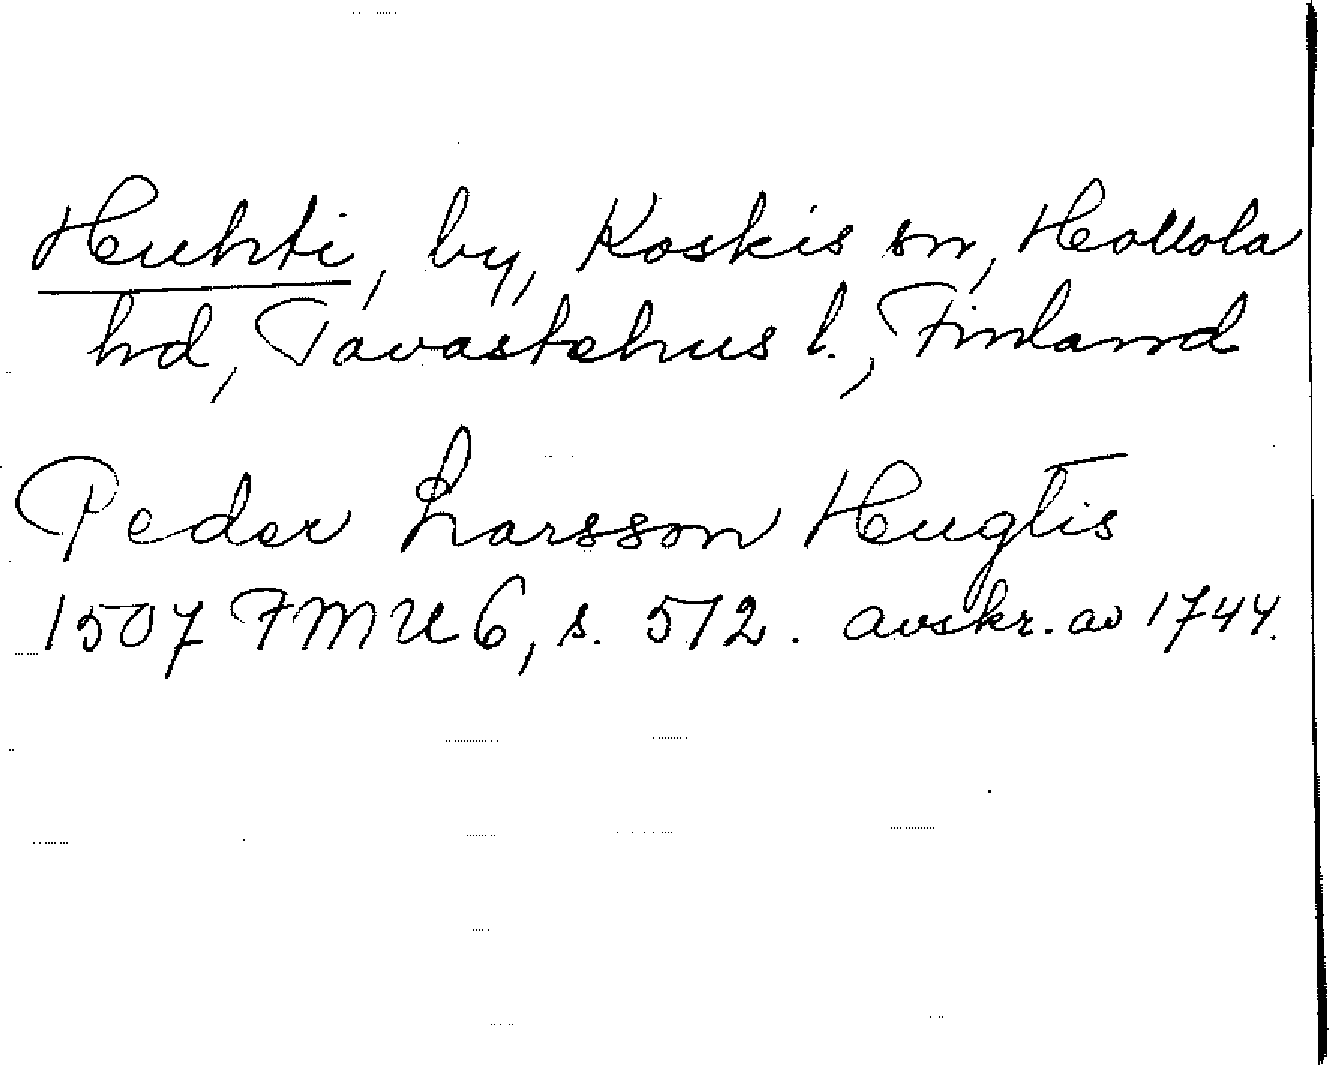 Huhti, by, Koskis sn, Hollola
hd, Tavastehus l., Finland
Peder Larsson Hugtis
1507 FMU 6, s. 572. avskr. av 1744.